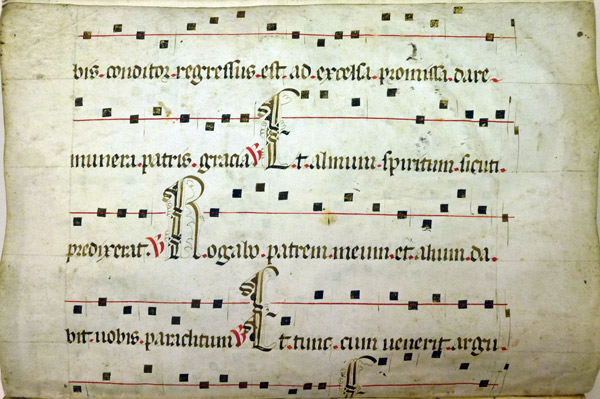 bis. conditor. regressus. est. ad. excelsa. promissa. dare
munera. patris. gracia ℟ Et. almum. spiritum. sicuti.
predixerat. ℟ Rogabo. patrem. meum. et. alium. da
bit. uobis. paraclitum ℟ Et. tunc. cum uenerit. argu